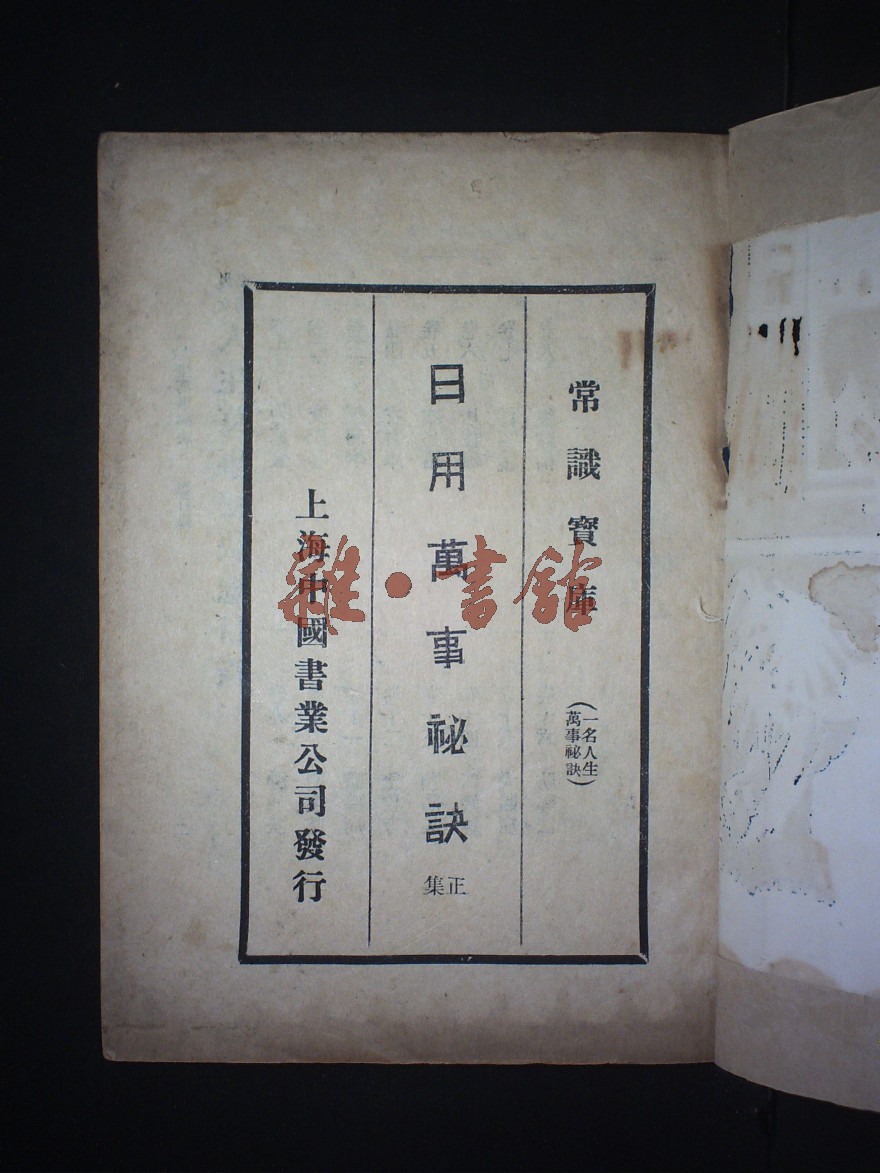 常識寶庫
（一名人生
萬事祕訣）
日用萬事祕訣
正集
上海中國書業公司發行
雜·書館